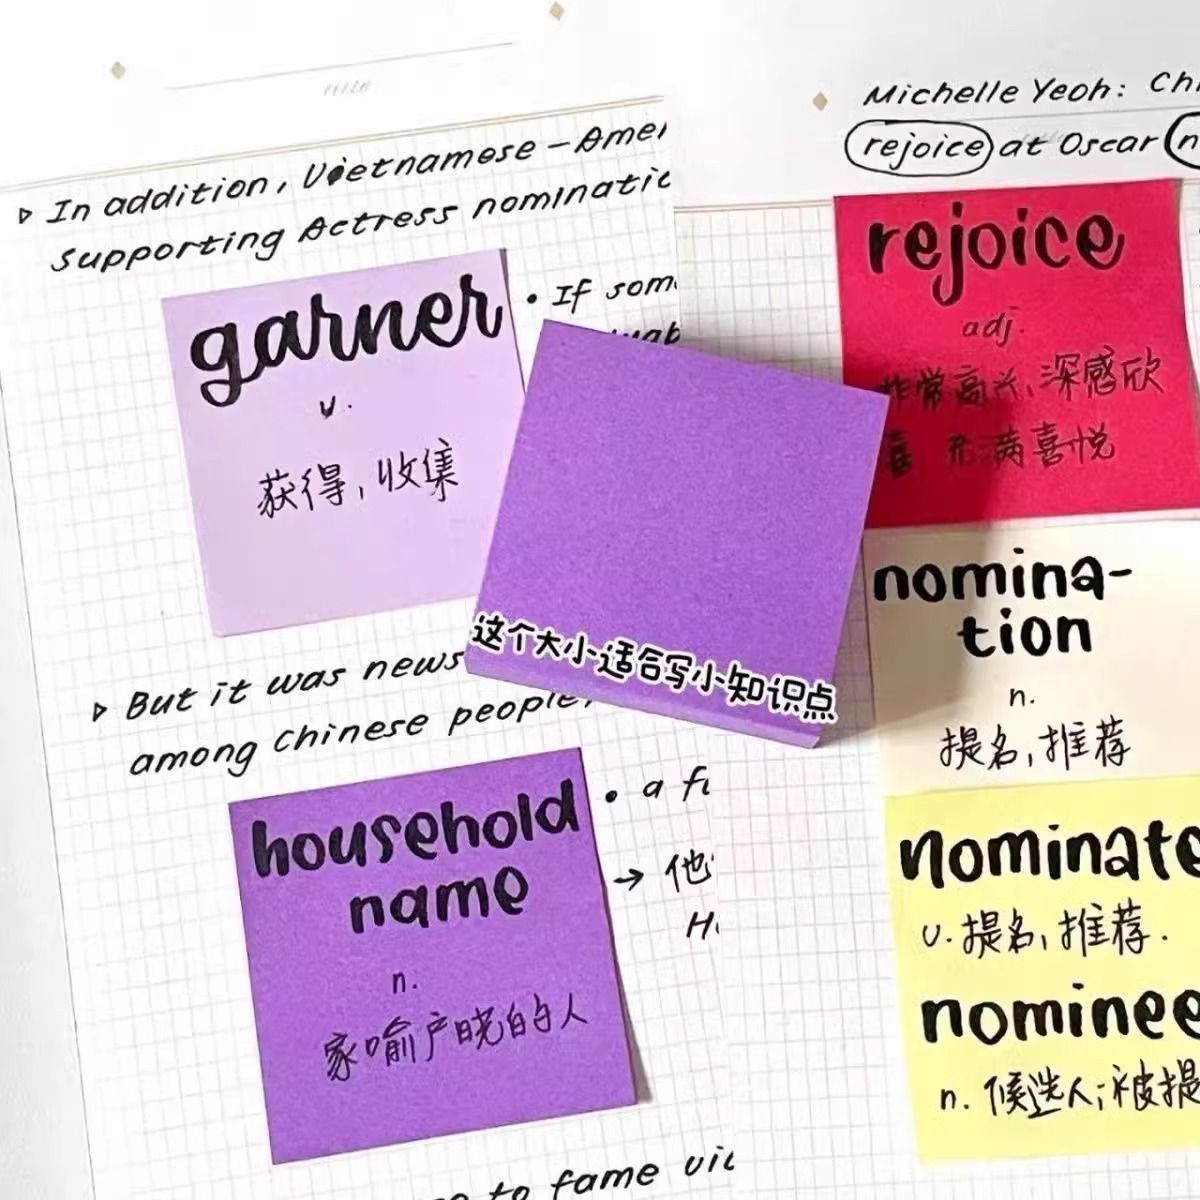 ▷ In addition, Vietnamese-Amer
Supporting Actress nominatio
garner
v.
获得,收集
• If som
▷ But it was news
among Chinese people,
household
name
n.
家喻户晓的人
• a fi
→ 他
H
to fame vi
这个大小适合写小知识点
Michelle Yeoh: Chi
rejoice at Oscar n
rejoice
adj.
非常高兴,深感欣
喜 充满喜悦
nomina-
tion
n.
提名,推荐
nominate
v. 提名,推荐.
nominee
n. 候选人;被提